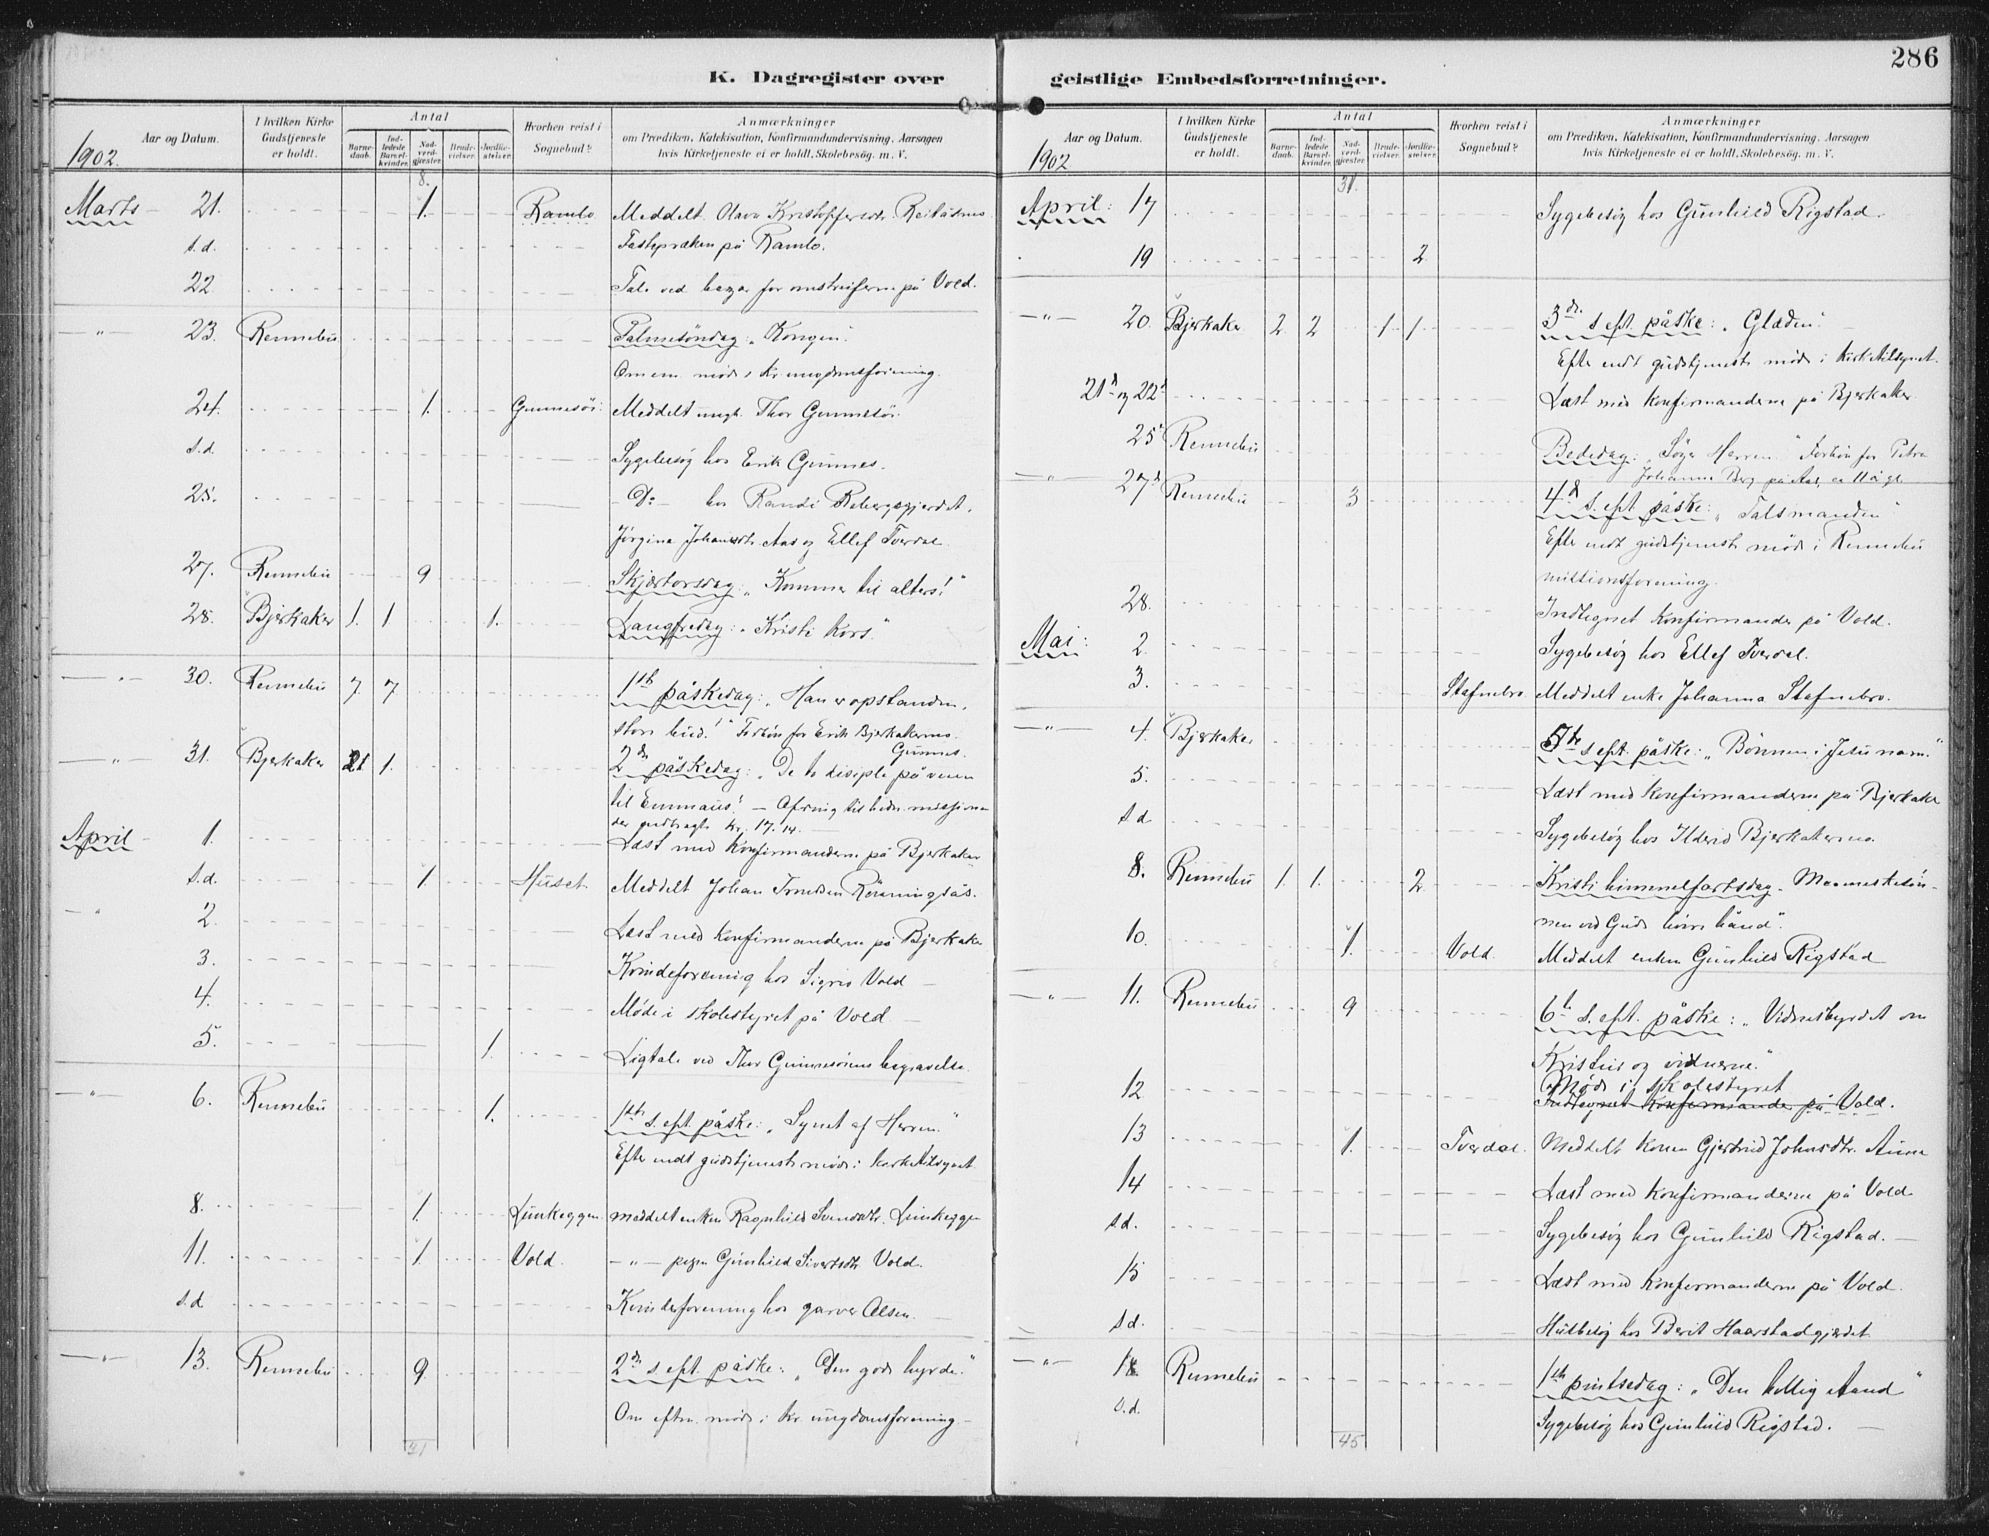 286
K. Dagregister over geistlige Embedsforretninger.
Aar og Datum. I hvilken Kirke Gudstjeneste er holdt. Antal Barnedaab. Indledede Barselkvinder. Nadverdgjester Brudevielser. Jordfæstelser. Hvorhen reist i Sognebud? Anmærkninger om Prædiken, Katekisation, Konfirmandundervisning. Aarsagen hvis Kirketjeneste ei er holdt. Skolebesøg. m. V.
1902.
8.
Marts 21. 1. Ramlo Meddelt Olava Kristoffersdt.
s.d. Fastepræken på Ramlo.
22 Tale ved bazar for på Vold.
-"- 23. Rennebu Palmesöndag: „Kongen."
Om em. möde i kr. ungdomsforening.
24. 1. Gunnesör. Meddelt ungk. Thor Gunnesör.
s.d. Sygebesög hos Erik Gunnes.
25. - Do - hos Randi
Jörgina Aas og Ellef Tverdal.
27. Rennebu 9 Skjærtorsdag: „Kommer til alters!"
28. Bjerkaker 1. 1 1. Langfredag: „Kristi kors."
-"- 30. Rennebu 7 7 1ste påskedag: „Han er opstanden,
store bud!" Forbön for Erik Bjerkakermo.
Gunnes.
-"- 31. Bjerkaker 1 1. 2den påskedag: „De to disiple på veien
til Emmaus" – Ofring til hedn. missionen
der indbragte kr. 17.14.
April 1. Læst med konfirmanderne på Bjerkaker
s.d. 1. Huset. Meddelt Johan Rönningsås.
-"- 2. Læst med konfirmanderne på Bjerkaker
3. Kvindeforening hos Sigrid Vold –
4. Möde i skolestyret på Vold –
5. 1. Ligtale ved Thor Gunnesörens begravelse.
-"- 6. Rennebu 1. 1ste s. eft. påske: „Synet af Herren."
Efter endt gudstjeneste möde i kirketilsynet.
8. 1. Lunkeggen meddelt enken Ragnhild Svendsdtr. Lunkeggen
11. 1. Vold. -"- Gunhild Sivertsdtr Vold.
s.d Kvindeforening hos garver Olsen.
-"- 13. Rennebu 9 2den s. eft. påske: „Den gode hyrde."
Om eftm. möde i kr. ungdomsforening –
1902
31.
April: 17 Sygebesög hos Gunhild Rigstad.
19 2
-"- 20. Bjerkaker 2 2 1 1 3die s. eft. påske: „Glæden."
Efter endt gudstjeneste möde i kirketilsynet.
21de og 22de Læst med konfirmanderne på Bjerkaker.
25 Rennebu Bededag: „Söger Herren" Forbön for Petra
Johanna Berg på Aas,
-"- 27de Rennebu 3 4de s. eft. påske: „Talsmanden"
Efter endt gudstjeneste möde i Rennebu
missionsforening.
28. Indtegnet konfirmander på Vold.
Mai: 2. Sygebesög hos Ellef Tverdal.
3. Stafnebro Meddelt enke Johanna Stafnebro.
-"- 4. Bjerkaker 5te s. eft. påske: „Bönnen i Jesu navn."
5. Læst med konfirmanderne på Bjerkaker
s.d Sygebesög hos Ildrid Bjerkakermo.
8. Rennebu 1. 1. 2 Kristi himmelfartsdag. Menneskesön-
nen ved Guds höire hånd".
10. 1. Vold. Meddelt enken Gunhild Rigstad
-"- 11. Rennebu 9 6te s. eft. påske: „Vidnesbyrdet om
Kristus og vidnerne."
12 Möde i skolestyret
Indtegnet konfirmander på Vold.
13 1. Tverdal. Meddelt konen Gjertrud Johnsdtr. Aune
14 Læst med konfirmanderne på Vold
s.d. Sygebesög hos Gunhild Rigstad. –
15 Læst med konfirmanderne på Vold.
s.d. Husbesög hos Berit Haarstadgjærdet
-"- 18. Rennebu 1ste pintsedag: „Den hellig Aand"
s.d. Sygebesög hos Gunhild Rigstad. –
31
45